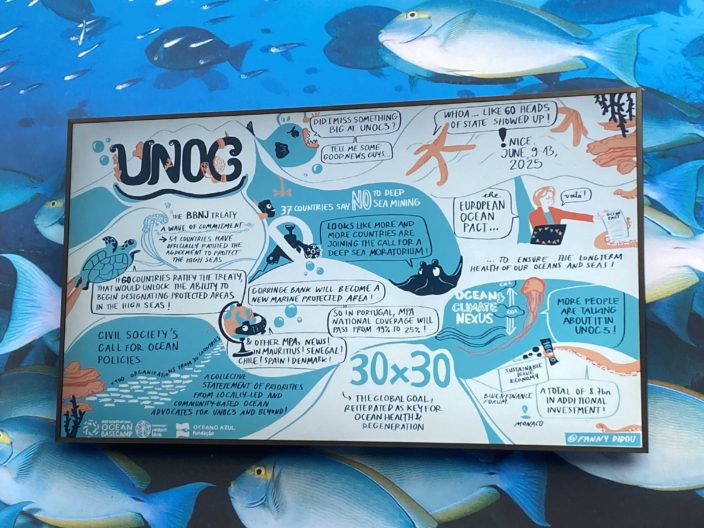 UNOC3
DID I MISS SOMETHING
BIG AT UNOC3?
TELL ME SOME
GOOD NEWS GUYS...
WHOA... LIKE 60 HEADS
OF STATE SHOWED UP!
NICE,
JUNE, 9-13,
2025
THE BBNJ TREATY
A WAVE OF COMMITMENT
→ 51 COUNTRIES HAVE
OFFICIALLY RATIFIED THE
AGREEMENT TO PROTECT
THE HIGH SEAS
IF 60 COUNTRIES RATIFY THE TREATY,
THAT WOULD UNLOCK THE ABILITY TO
BEGIN DESIGNATING PROTECTED AREAS
IN THE HIGH SEAS!
37 COUNTRIES SAY NO TO DEEP
SEA MINING
LOOKS LIKE MORE AND
MORE COUNTRIES ARE
JOINING THE CALL FOR A
DEEP SEA MORATORIUM!
the
EUROPEAN
OCEAN
PACT...
voilà!
OCEAN
PACT
... TO ENSURE THE LONGTERM
HEALTH OF OUR OCEANS AND SEAS!
GORRINGE BANK WILL BECOME A
NEW MARINE PROTECTED AREA!
SO IN PORTUGAL, MPA
NATIONAL COVERAGE WILL
PASS FROM 19% TO 25%!
& OTHER MPAs NEWS!
IN MAURITIUS! SENEGAL!
CHILE! SPAIN! DENMARK!
OCEAN
CLIMATE
NEXUS
MORE PEOPLE
ARE TALKING
ABOUT IT IN
UNOC3!
CIVIL SOCIETY'S
CALL FOR OCEAN
POLICIES
A COLLECTIVE
STATEMENT OF PRIORITIES
FROM LOCALLY-LED AND
COMMUNITY-BASED OCEAN
ADVOCATES FOR UNOC3 AND BEYOND!
30×30
↳ THE GLOBAL GOAL,
REITERATED AS KEY FOR
OCEAN HEALTH &
REGENERATION
SUSTAINABLE
BLUE
ECONOMY
BLUE & FINANCE
FORUM
MONACO
A TOTAL OF 8,7bn
IN ADDITIONAL
INVESTMENT!
OCEAN
BASECAMP
OCEANO AZUL
Fundação
@FANNY DIDOU